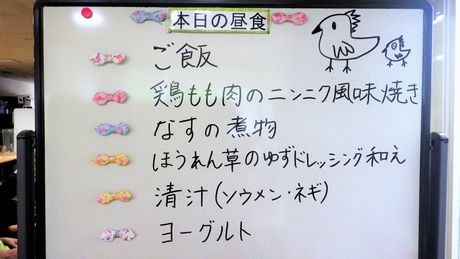 本日の昼食
ご飯
鶏もも肉のニンニク風味焼き
なすの煮物
ほうれん草のゆずドレッシング和え
清汁(ソウメン・ネギ)
ヨーグルト